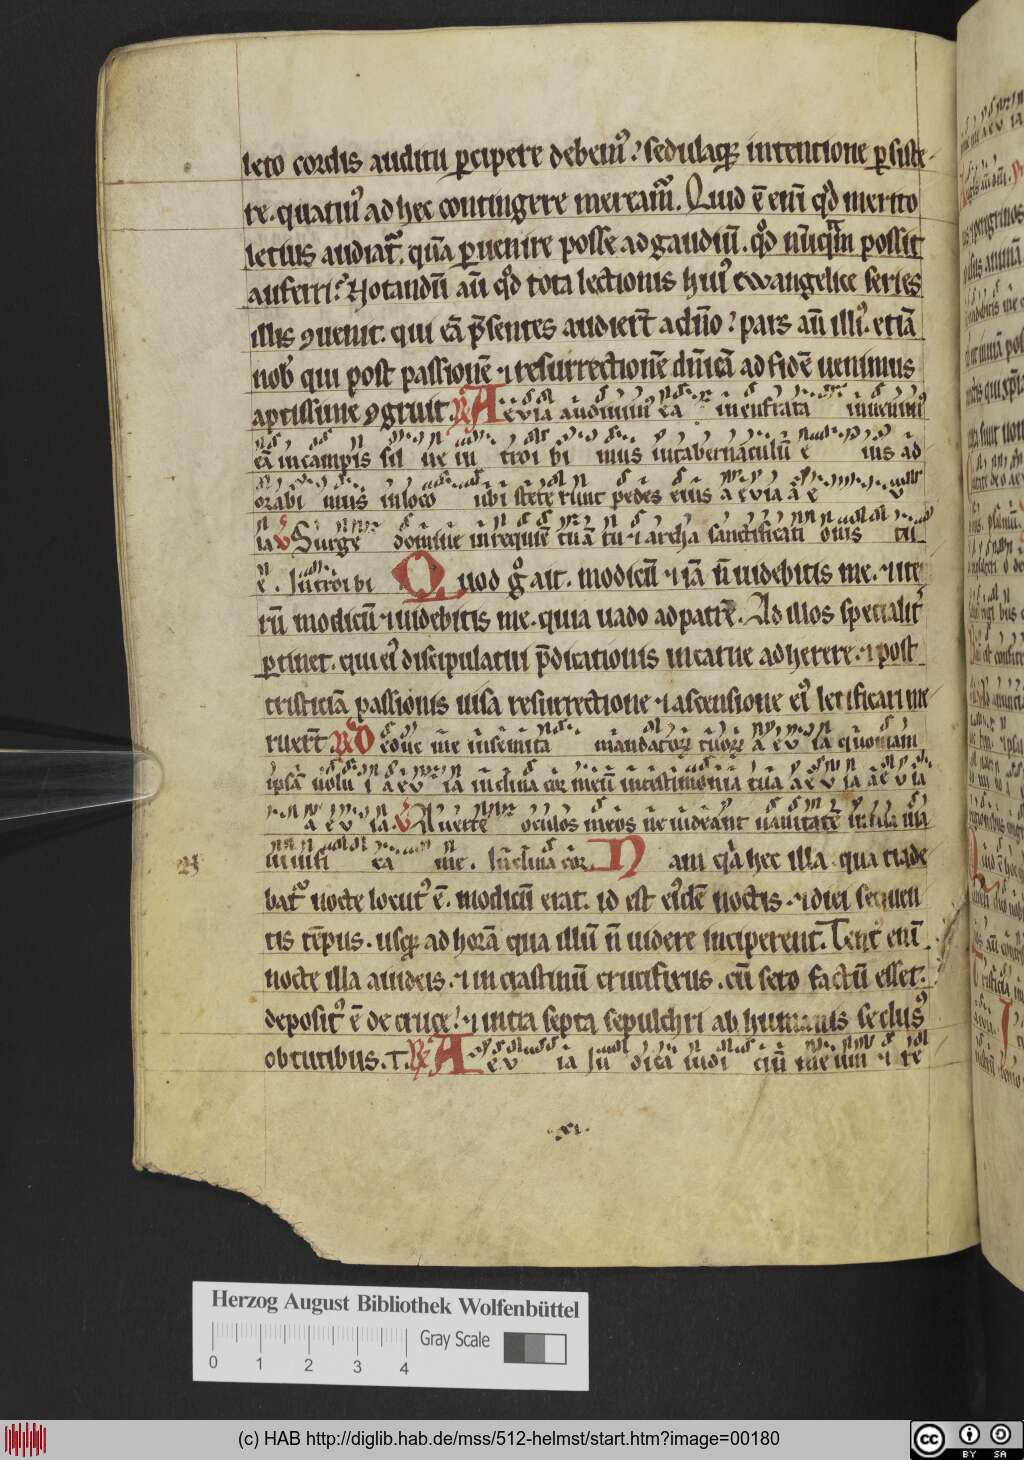 leto cordis auditu ꝑcipere debem᷒. sedulaqꝫ intentione ꝑsiste
re. quatin᷒ ad hec contingere meream᷒. Quid ē enī qd̄ merito
letius audiat᷒. quā ꝑuenire posse ad gaudiū. qd̄ nūquā possit
auferri. Notandū aū qd̄ tota lectionis hui᷒ ewangelice series
illis ꝯuenit. qui eā p̄sentes audiert̄ a dn̄o. pars aū illi᷒. etiā
nob᷒ qui post passionē ⁊ resurrectionē dn̄icā ad fidē uenimus
aptissime ꝯgruit. R̄ Aevia audiuim᷒ ea in eufrata inuenim᷒
eā in campis silue in troi bi mus in tabernaculū e ius ad
orabi mus in loco ubi stete runt pedes eius aevia a e v
ia V Surge domine in requiē tuā tu ⁊ archa sanctificati onis tu
e. Introi bi Quod g̊ ait. modicū ⁊ iā n̄ uidebitis me. ⁊ ite
rū modicū ⁊ uidebitis me. quia uado ad patrē. Ad illos specialit᷒
ꝑtinet. qui ei᷒ discipulatui p̄dicationis uicatue adherere. ⁊ post
tristiciā passionis uisa resurrectione ⁊ ascensione ei᷒ letificari me
ruert̄. R̄ Deduc me in semita mandatorꝝ tuorꝝ aevia quoniam
ipsā uolu i aevia inclina cor meū in testimonia tua aevia aevia
aevia. V Auerte oculos meos ne uideant uanitatē in uia tua
uiuifi ca me. Inclina cor. Nam qn̄ hec illa qua trade
bat᷒ nocte locut᷒ ē. modicū erat. id est ei᷒dē noctis. ⁊ diei sequen
tis tēpus. usqꝫ ad horā qua illū n̄ uidere inciperent. Tent᷒ enī
nocte illa a iudeis. ⁊ in crastinū crucifixus. cū sero factū esset.
deposit᷒ ē de cruce. ⁊ intra septa sepulchri ab humanis seclus᷒
obtutibus. T. R̄ Aevia Iu dica iudi ciū meum ⁊ re
.xi.
Herzog August Bibliothek Wolfenbüttel
Gray Scale
0 1 2 3 4
(c) HAB http://diglib.hab.de/mss/512-helmst/start.htm?image=00180
cc BY SA